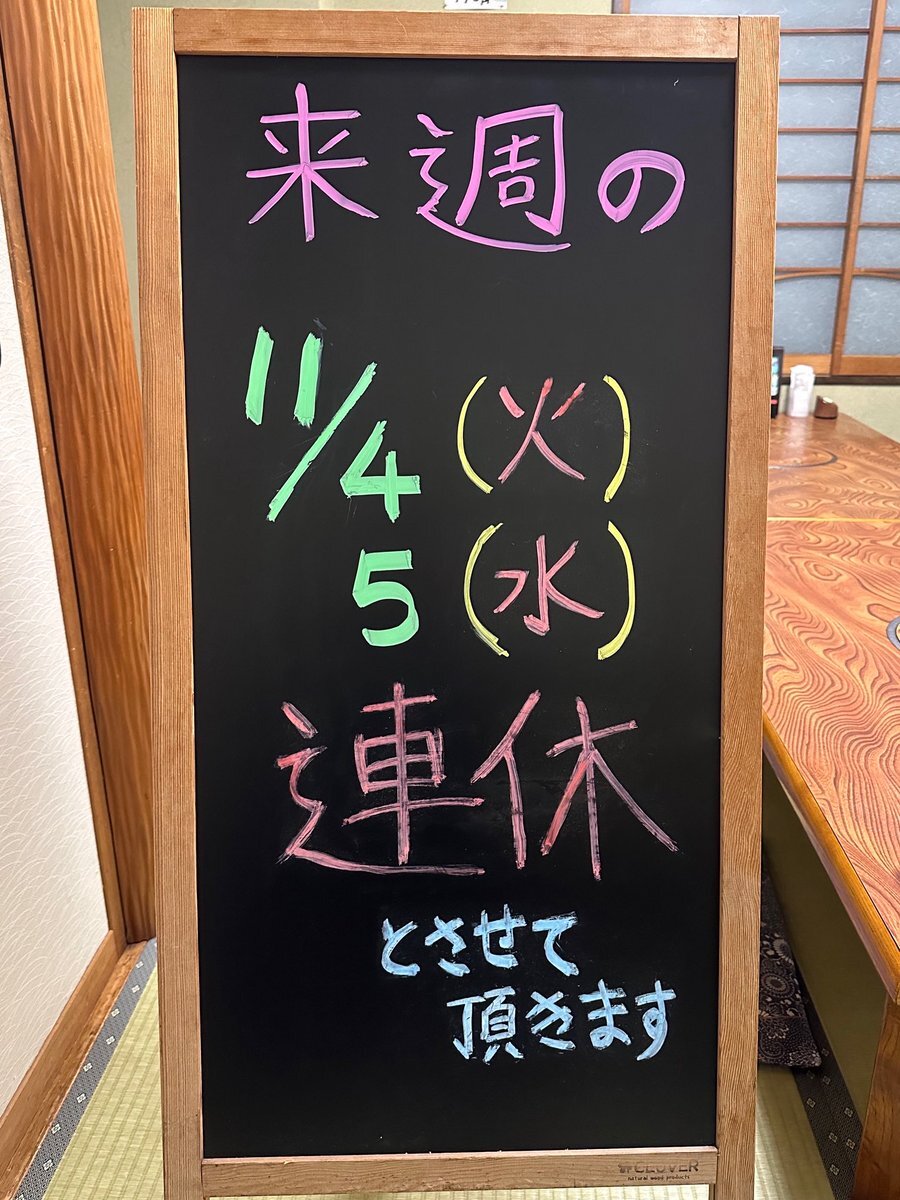 来週の
11/4(火)
5(水)
連休
とさせて
頂きます
CLOVER
natural wood products